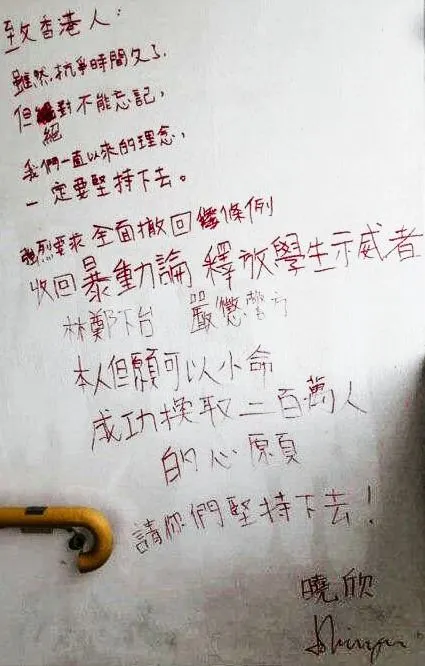 致香港人：
雖然抗爭時間久了，
但絕對不能忘記，
我們一直以來的理念，
一定要堅持下去。
強烈要求全面撤回條例
收回暴動論 釋放學生示威者
林鄭下台 嚴懲警方
本人但願可以小命
成功換取二百萬人
的心願
請你們堅持下去！
曉欣